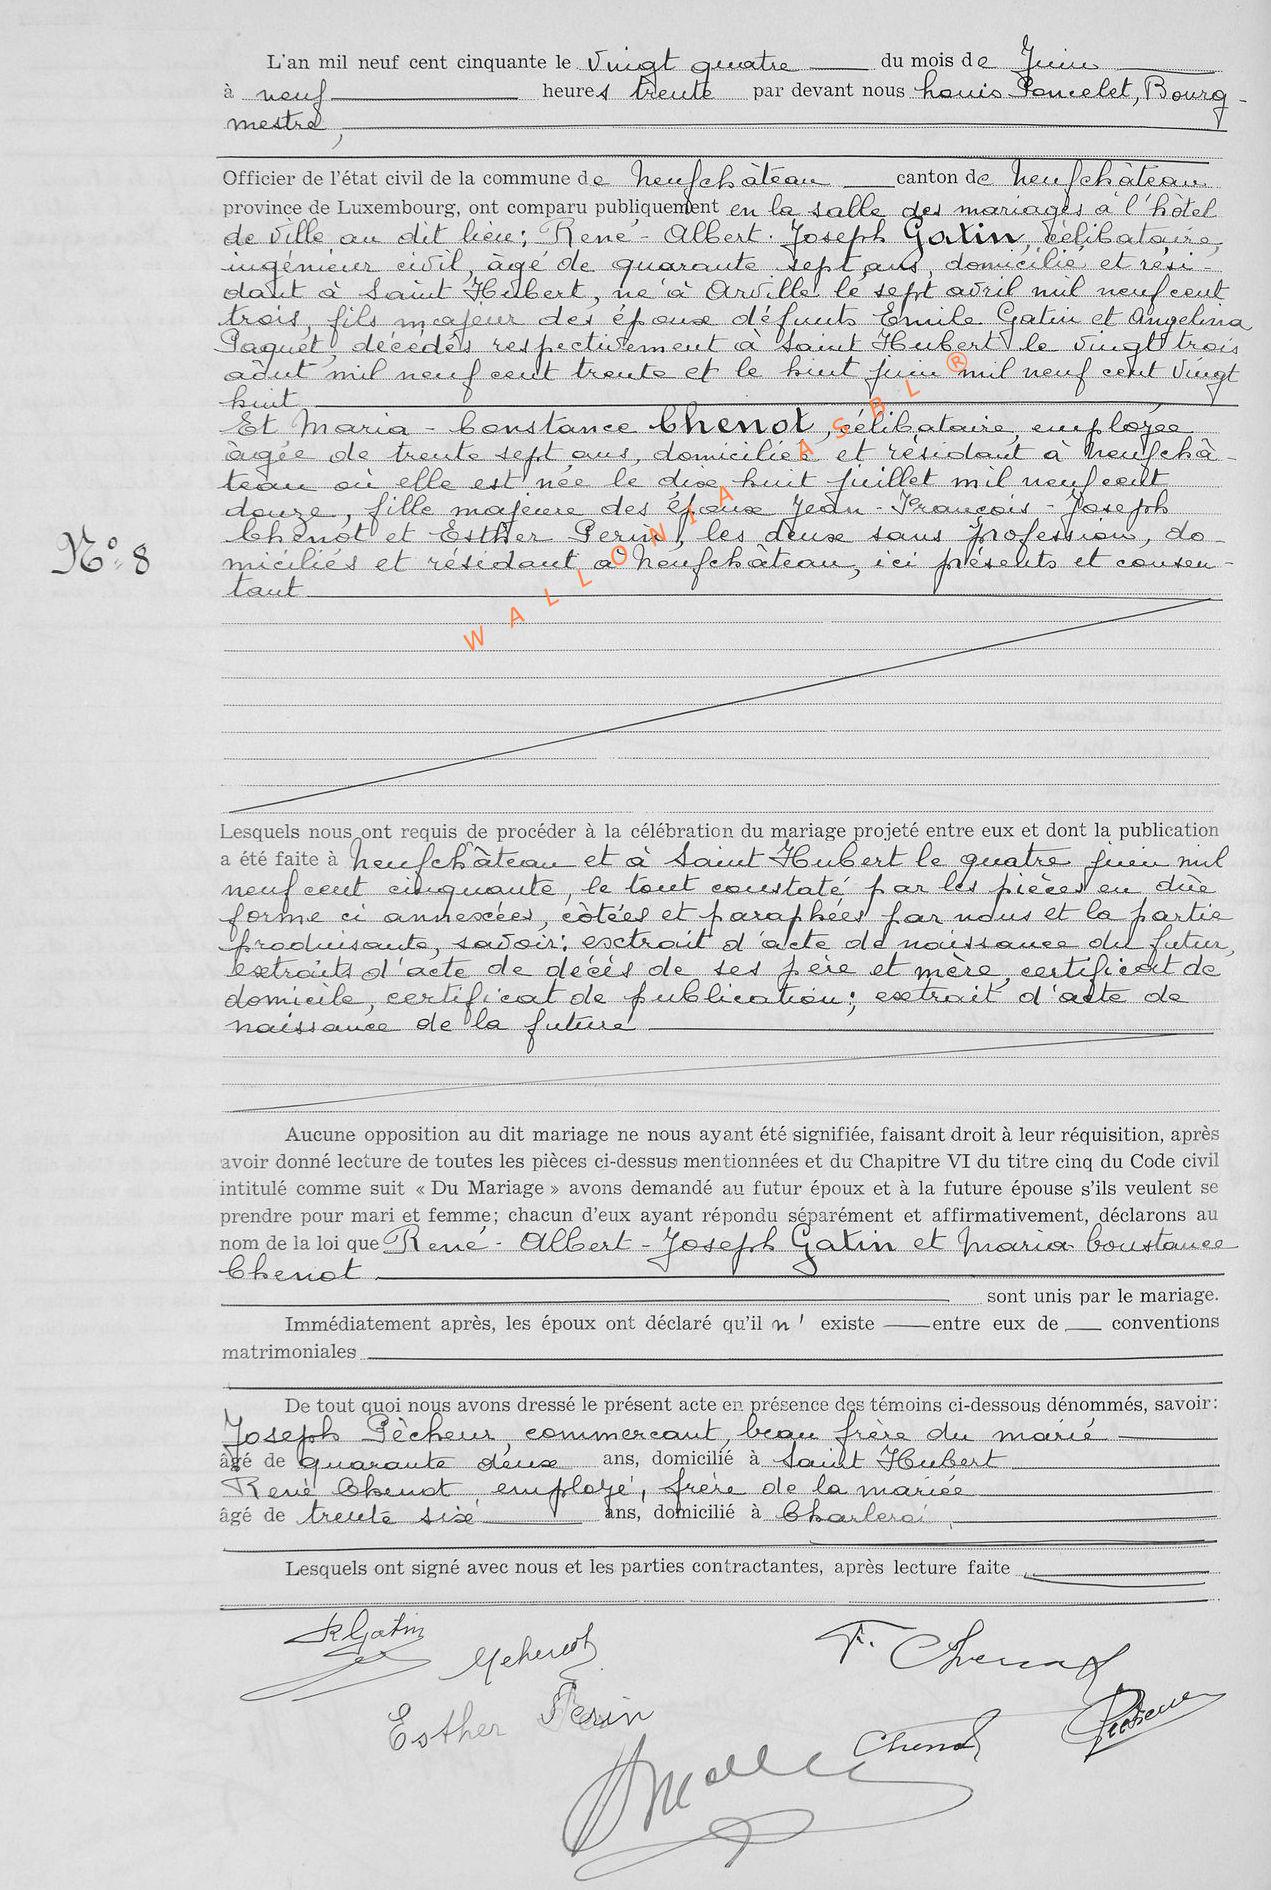 L'an mil neuf cent cinquante le vingt quatre du mois de Juin
à neuf heures trente par devant nous Louis Poncelet, Bourg-
mestre,
Officier de l'état civil de la commune de Neufchâteau canton de Neufchâteau
province de Luxembourg, ont comparu publiquement en la salle des mariages à l'hôtel
de ville au dit lieu; René-Albert-Joseph Gatin, célibataire,
ingénieur civil, âgé de quarante sept ans, domicilié et rési-
dant à Saint Hubert, né à Arville le sept avril mil neuf cent
trois, fils majeur des époux défunts Emile Gatin et Angelina
Paquet, décédés respectivement à Saint Hubert le vingt trois
août mil neuf cent trente et le huit juin mil neuf cent vingt
huit
Et Maria-Constance Chenot, célibataire, employée
âgée de trente sept ans, domiciliée et résidant à Neufchâ-
teau où elle est née le dix huit juillet mil neuf cent
douze, fille majeure des époux Jean-François-Joseph
Chenot et Esther Perin, les deux sans profession, do-
N° 8 miciliés et résidant à Neufchâteau, ici présents et consen-
tant
WALLONIA ASBL ®
Lesquels nous ont requis de procéder à la célébration du mariage projeté entre eux et dont la publication
a été faite à Neufchâteau et à Saint Hubert le quatre juin mil
neuf cent cinquante, le tout constaté par les pièces en dûe
forme ci annexées, côtées et paraphées par nous et la partie
produisante, savoir: extrait d'acte de naissance du futur,
extraits d'acte de décès de ses père et mère, certificat de
domicile, certificat de publication; extrait d'acte de
naissance de la future
Aucune opposition au dit mariage ne nous ayant été signifiée, faisant droit à leur réquisition, après
avoir donné lecture de toutes les pièces ci-dessus mentionnées et du Chapitre VI du titre cinq du Code civil
intitulé comme suit « Du Mariage » avons demandé au futur époux et à la future épouse s'ils veulent se
prendre pour mari et femme; chacun d'eux ayant répondu séparément et affirmativement, déclarons au
nom de la loi que René-Albert-Joseph Gatin et Maria Constance
Chenot
sont unis par le mariage.
Immédiatement après, les époux ont déclaré qu'il n' existe entre eux de conventions
matrimoniales
De tout quoi nous avons dressé le présent acte en présence des témoins ci-dessous dénommés, savoir:
Joseph Pècheur, commercant, beau frère du marié
âgé de quarante deux ans, domicilié à Saint Hubert
René Chenot employé, frère de la mariée
âgé de trente six ans, domicilié à Charleroi
Lesquels ont signé avec nous et les parties contractantes, après lecture faite
R Gatin
M Chenot F. Chenot
Esther Perin
Chenot